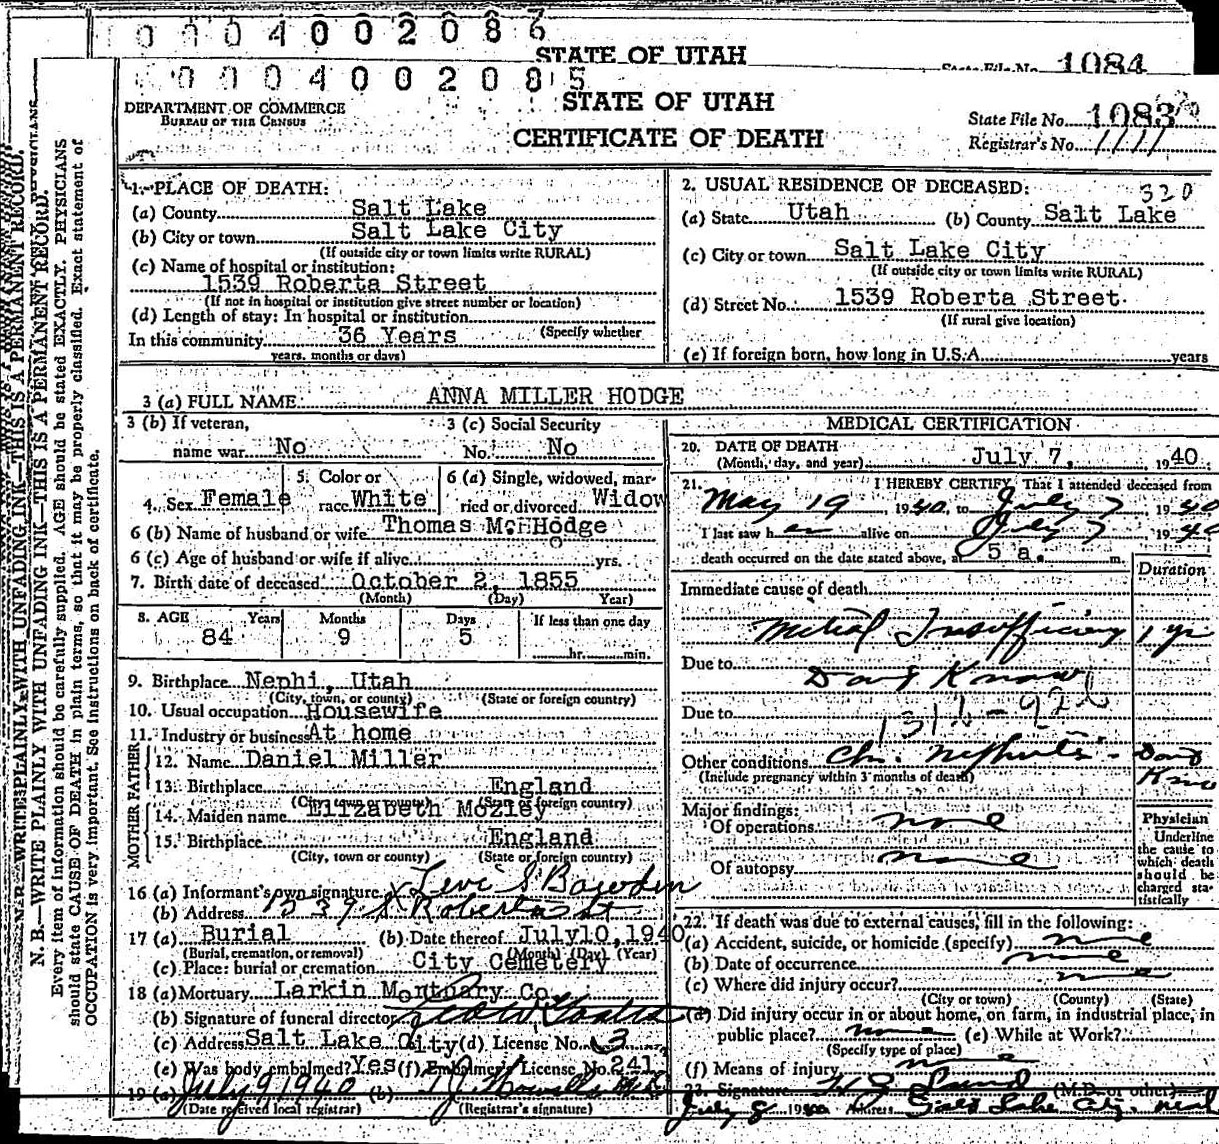 0004002086
STATE OF UTAH
State File No. 1084
0004002085
STATE OF UTAH
DEPARTMENT OF COMMERCE
BUREAU OF THE CENSUS
CERTIFICATE OF DEATH
State File No. 1083
Registrar's No. 1111
N. B.—WRITE PLAINLY WITH UNFADING INK—THIS IS A PERMANENT RECORD.
Every item of information should be carefully supplied. AGE should be stated EXACTLY. PHYSICIANS
should state CAUSE OF DEATH in plain terms, so that it may be properly classified. Exact statement of
OCCUPATION is very important. See instructions on back of certificate.
1. PLACE OF DEATH:
(a) County Salt Lake
(b) City or town Salt Lake City
(If outside city or town limits write RURAL)
(c) Name of hospital or institution:
1539 Roberta Street
(If not in hospital or institution give street number or location)
(d) Length of stay: In hospital or institution
(Specify whether
In this community 36 Years
years, months or days)
2. USUAL RESIDENCE OF DECEASED: 320
(a) State Utah (b) County Salt Lake
(c) City or town Salt Lake City
(If outside city or town limits write RURAL)
(d) Street No. 1539 Roberta Street
(If rural give location)
(e) If foreign born, how long in U.S.A. years
3 (a) FULL NAME ANNA MILLER HODGE
3 (b) If veteran,
name war No
3 (c) Social Security
No. No
4. Sex Female
5. Color or
race White
6 (a) Single, widowed, mar-
ried or divorced Widow
6 (b) Name of husband or wife Thomas Mc. Hodge
6 (c) Age of husband or wife if alive yrs.
7. Birth date of deceased October 2, 1855
(Month) (Day) Year)
8. AGE Years Months Days If less than one day
84 9 5
hr. min.
9. Birthplace Nephi, Utah
(City, town, or county) (State or foreign country)
10. Usual occupation Housewife
11. Industry or business At home
FATHER
12. Name Daniel Miller
13. Birthplace England
(City, town or county) (State or foreign country)
MOTHER
14. Maiden name Elizabeth Mozley
15. Birthplace England
(City, town or county) (State or foreign country)
16 (a) Informant's own signature x Levi S Bowden
(b) Address 1539 S. Roberta St
17 (a) Burial (b) Date thereof July 10, 1940
(Burial, cremation, or removal) (Month) (Day) (Year)
(c) Place: burial or cremation City Cemetery
18 (a) Mortuary Larkin Mortuary Co.
(b) Signature of funeral director
(c) Address Salt Lake City (d) License No. 3
(e) Was body embalmed? Yes (f) Embalmer's License No. 241
19 (a) July 9, 1940 (b) T J Howells M D
(Date received local registrar) (Registrar's signature)
MEDICAL CERTIFICATION
20. DATE OF DEATH
(Month, day, and year) July 7, 1940
21. I HEREBY CERTIFY, That I attended deceased from
May 19, 1940, to July 7 1940
I last saw h er alive on July 7 1940
death occurred on the date stated above, at 5 a. m.
Duration
Immediate cause of death
Mitral Insufficiency 1 yr
Due to Dont Know
Due to 131b - 92b
Other conditions Ch. Nephritis - Dont Know
(Include pregnancy within 3 months of death)
Major findings:
Of operations none
Of autopsy none
Physician
Underline
the cause to
which death
should be
charged sta-
tistically
22. If death was due to external causes, fill in the following:
(a) Accident, suicide, or homicide (specify) none
(b) Date of occurrence none
(c) Where did injury occur? none
(City or town) (County) (State)
(d) Did injury occur in or about home, on farm, in industrial place, in
public place? none (e) While at Work?
(Specify type of place)
(f) Means of injury none
23. Signature (M.D. or other)
July 8 1940 Address Salt Lake City